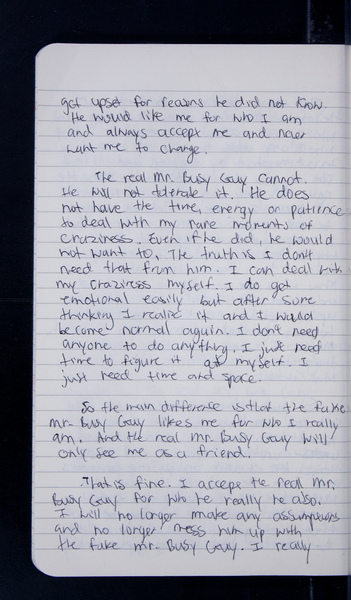 got upset for reasons he did not know.
He would like me for who I am
and always accept me and never
want me to change.
The real Mr. Busy Guy cannot.
He will not tolerate it. He does
not have the time, energy or patience
to deal with my rare moments of
craziness. Even if he did, he would
not want to. The truth is I don't
need that from him. I can deal with
my craziness myself. I do get
emotional easily but after some
thinking I realize it and I would
become normal again. I don't need
anyone to do anything. I just need
time to figure it myself. I
just need time and space.
So the main difference is that the fake
Mr. Busy Guy likes me for who I really
am. And the real Mr. Busy Guy will
only see me as a friend.
That is fine. I accept the real Mr.
Busy Guy for who he really he also.
I will no longer make any assumptions
and no longer mess him up with
the fake Mr. Busy Guy. I really